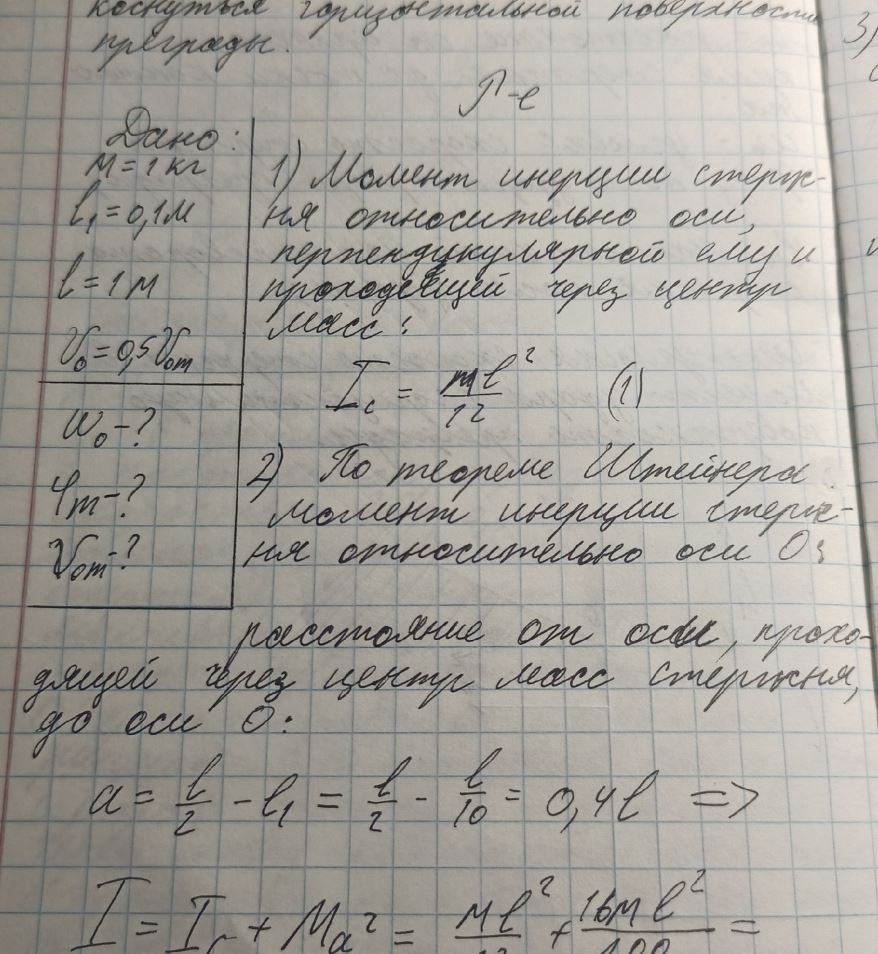 коснуться горизонтальной поверхности
преграды.
Р-е
Дано:
M = 1 кг
l₁ = 0,1 м
l = 1 м
V₀ = 0,5 V₀m
ω₀ - ?
φm - ?
V₀m - ?
1) Момент инерции стерж-
ня относительно оси,
перпендукулярной ему и
проходящей через центр
масс:
I_c = ml²/12 (1)
2) По теореме Штейнера
момент инерции стерж-
ня относительно оси O:
расстояние от оси, прохо-
дящей через центр масс стержня,
до оси O:
a = l/2 - l₁ = l/2 - l/10 = 0,4l =>
I = I_c + Ma² = Ml²/12 + 16Ml²/100 =
3)